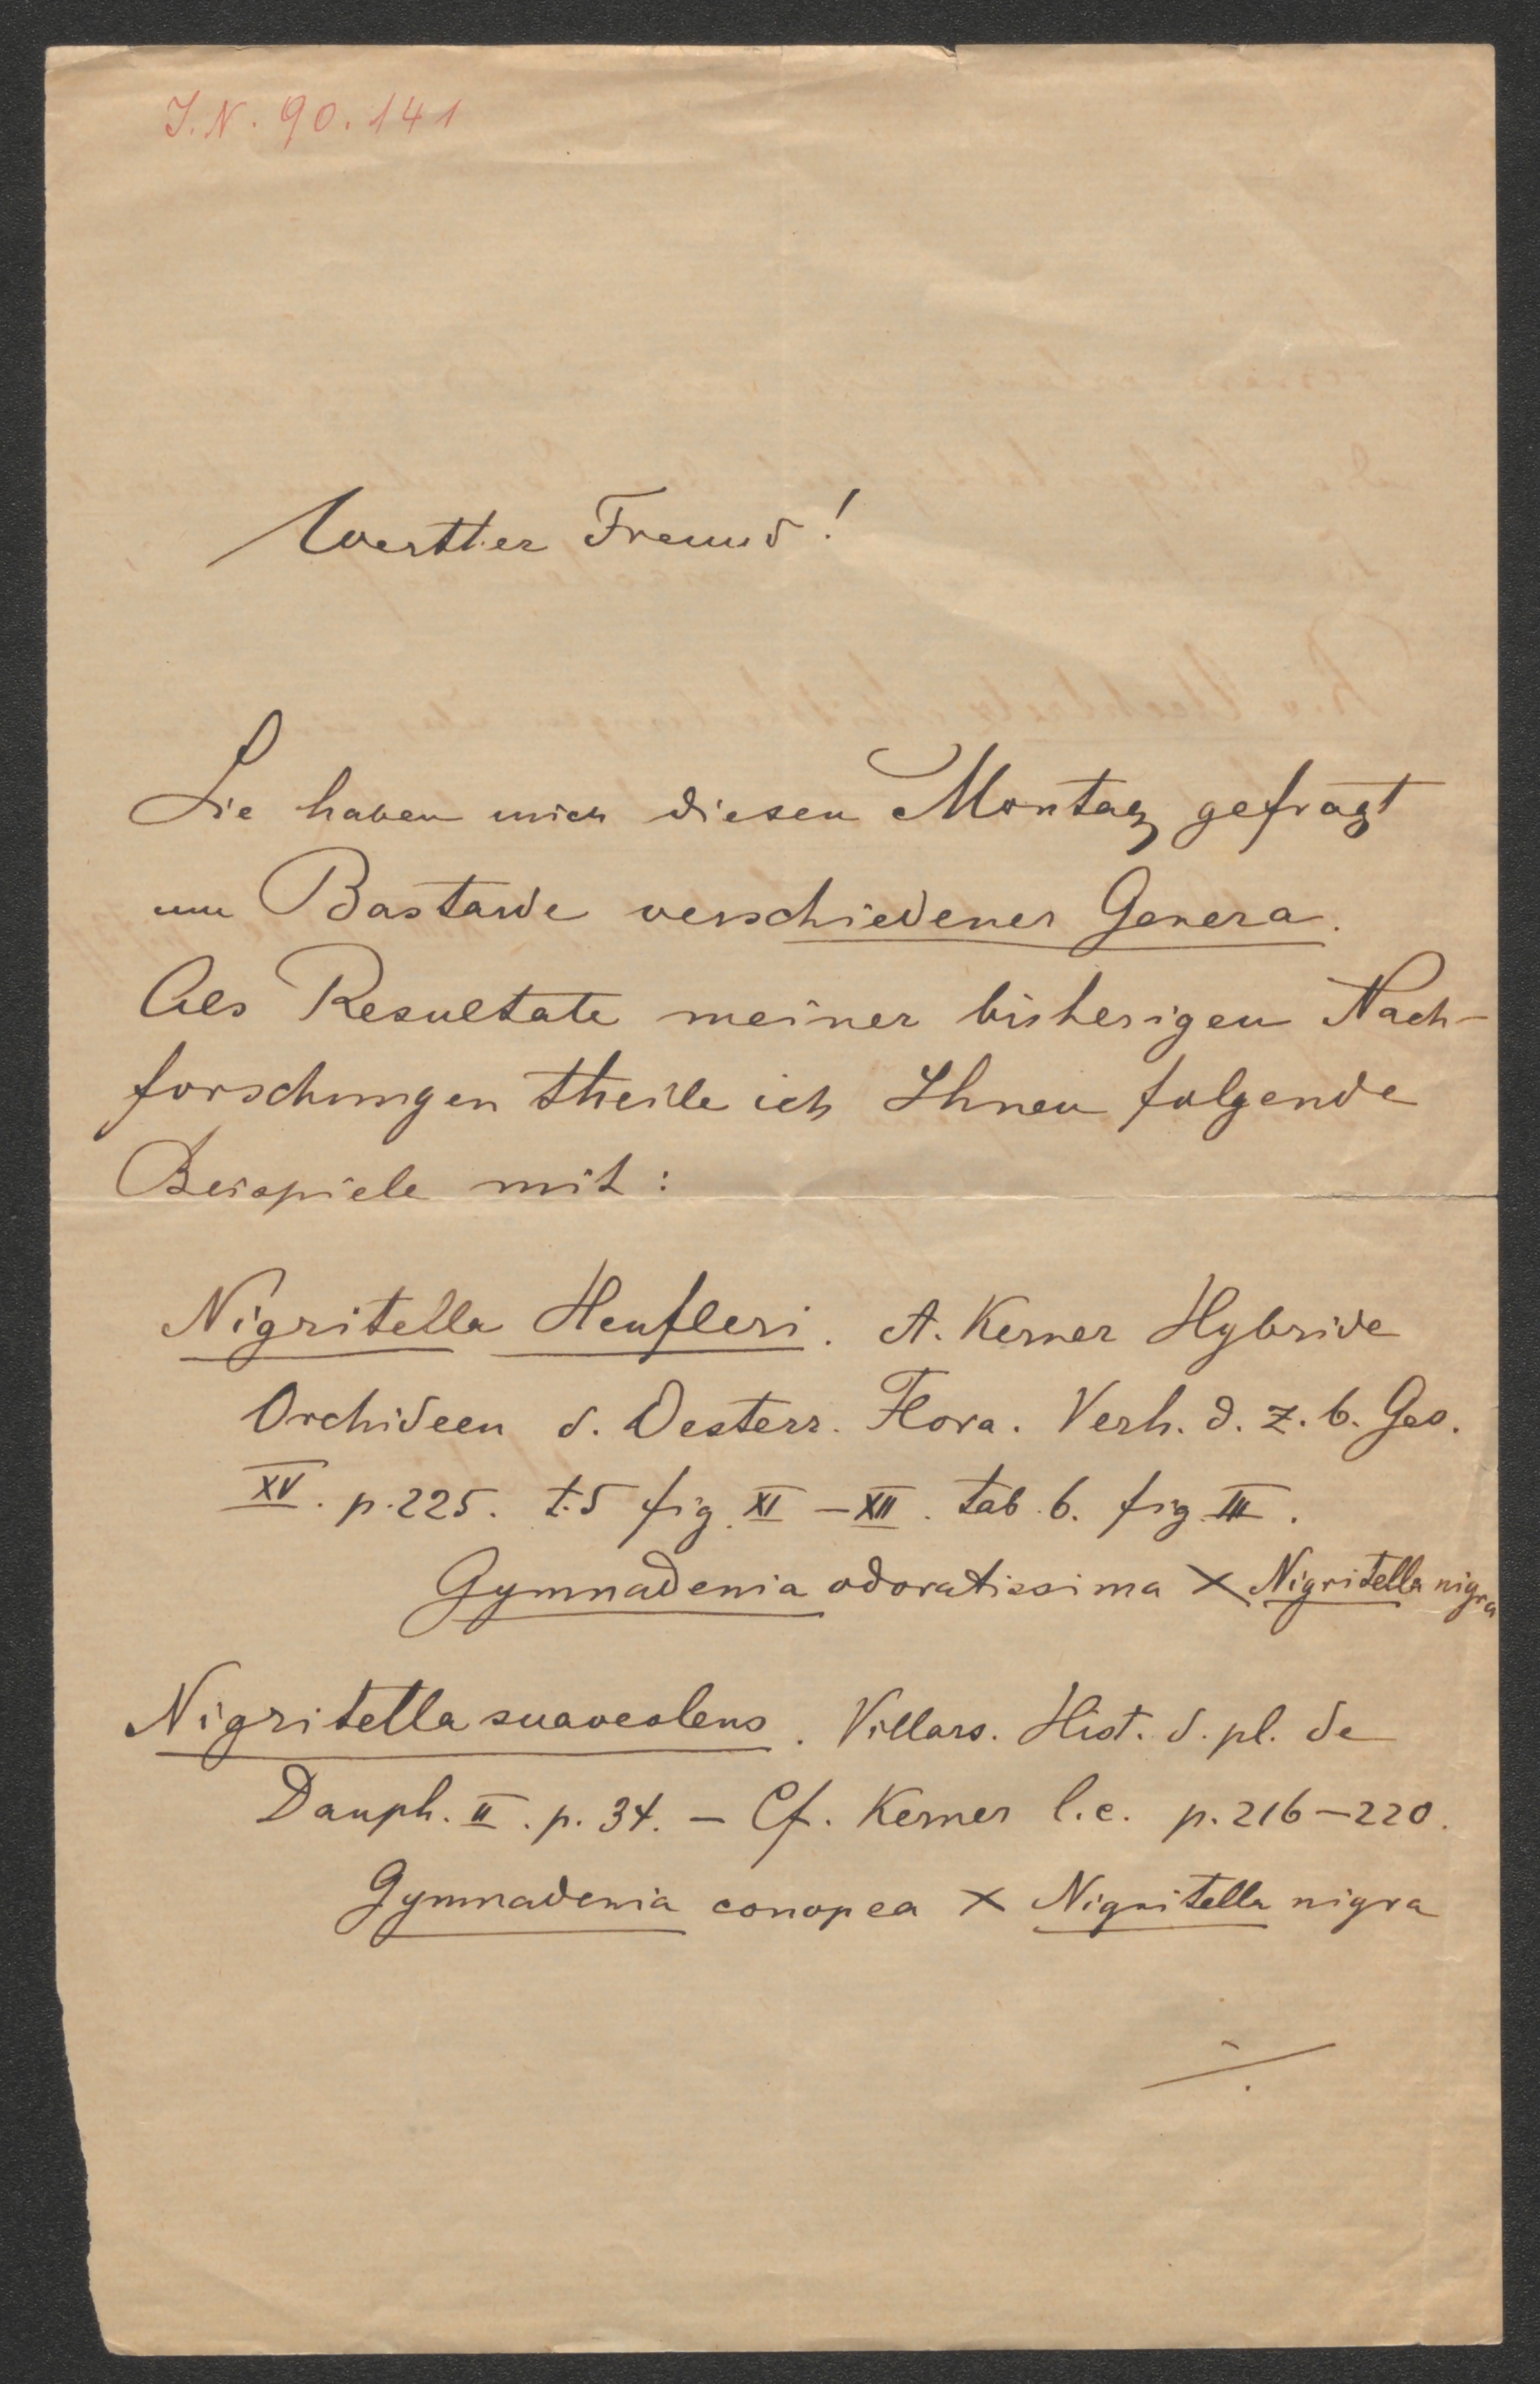 J.N. 90.141
Werther Freund!
Sie haben mich diesen Montag gefragt
um Bastarde verschiedener Genera.
Als Resultate meiner bisherigen Nach-
forschungen theile ich Ihnen folgende
Beispiele mit:
Nigritella Heufleri. A. Kerner Hybride
Orchideen d. Oesterr. Flora. Verh. d. z. b. Ges.
XV. p. 225. t. 5 fig. XI – XII. tab. 6. fig. III.
Gymnadenia odoratissima × Nigritella nigra
Nigritella suaveolens. Villars. Hist. d. pl. de
Dauph. II. p. 34. – Cf. Kerner l.c. p. 216–220.
Gymnadenia conopea × Nigritella nigra
./.